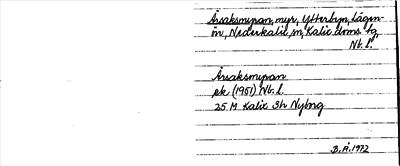 Årsaksmyran, myr, Ytterbyn, Lågön-
ön, Nederkalix sn, Kalix doms. tg,
Nb. l.
Årsaksmyran
ek (1951) Nb. l.
25 M Kalix 3h Nybng
B.Å. 1972